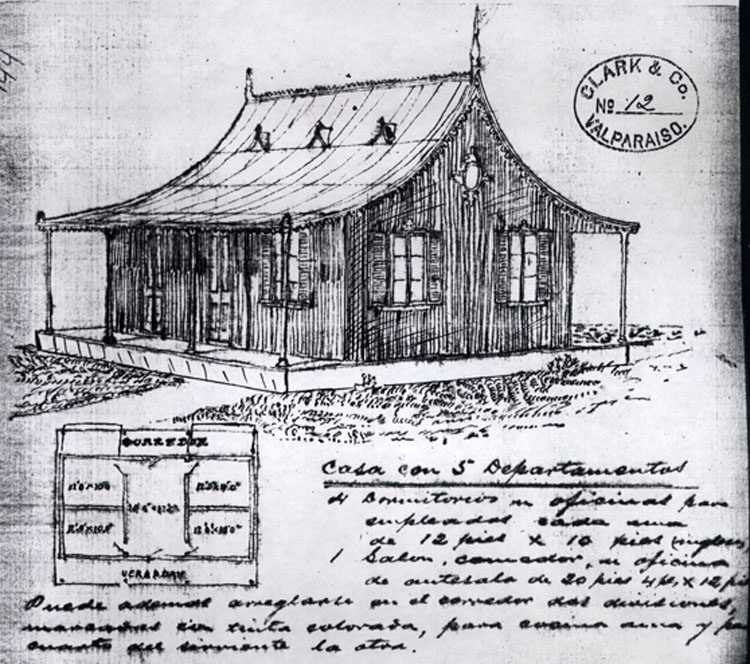 CLARK & Co.
No 12
VALPARAISO.
CORREDOR
12'0"x10'0"
12'0"x10'0"
VERANDAH
Casa con 5 Departamentos
4 Dormitorios u oficinas para
empleados cada una
de 12 pies x 10 pies ingleses
1 Salon, comedor, u oficina
de antesala de 20 pies 4 p. x 12 p
Puede ademas arreglarse en el corredor dos divisiones,
marcadas con tinta colorada, para cocina una y pa
cuarto del sirviente la otra.